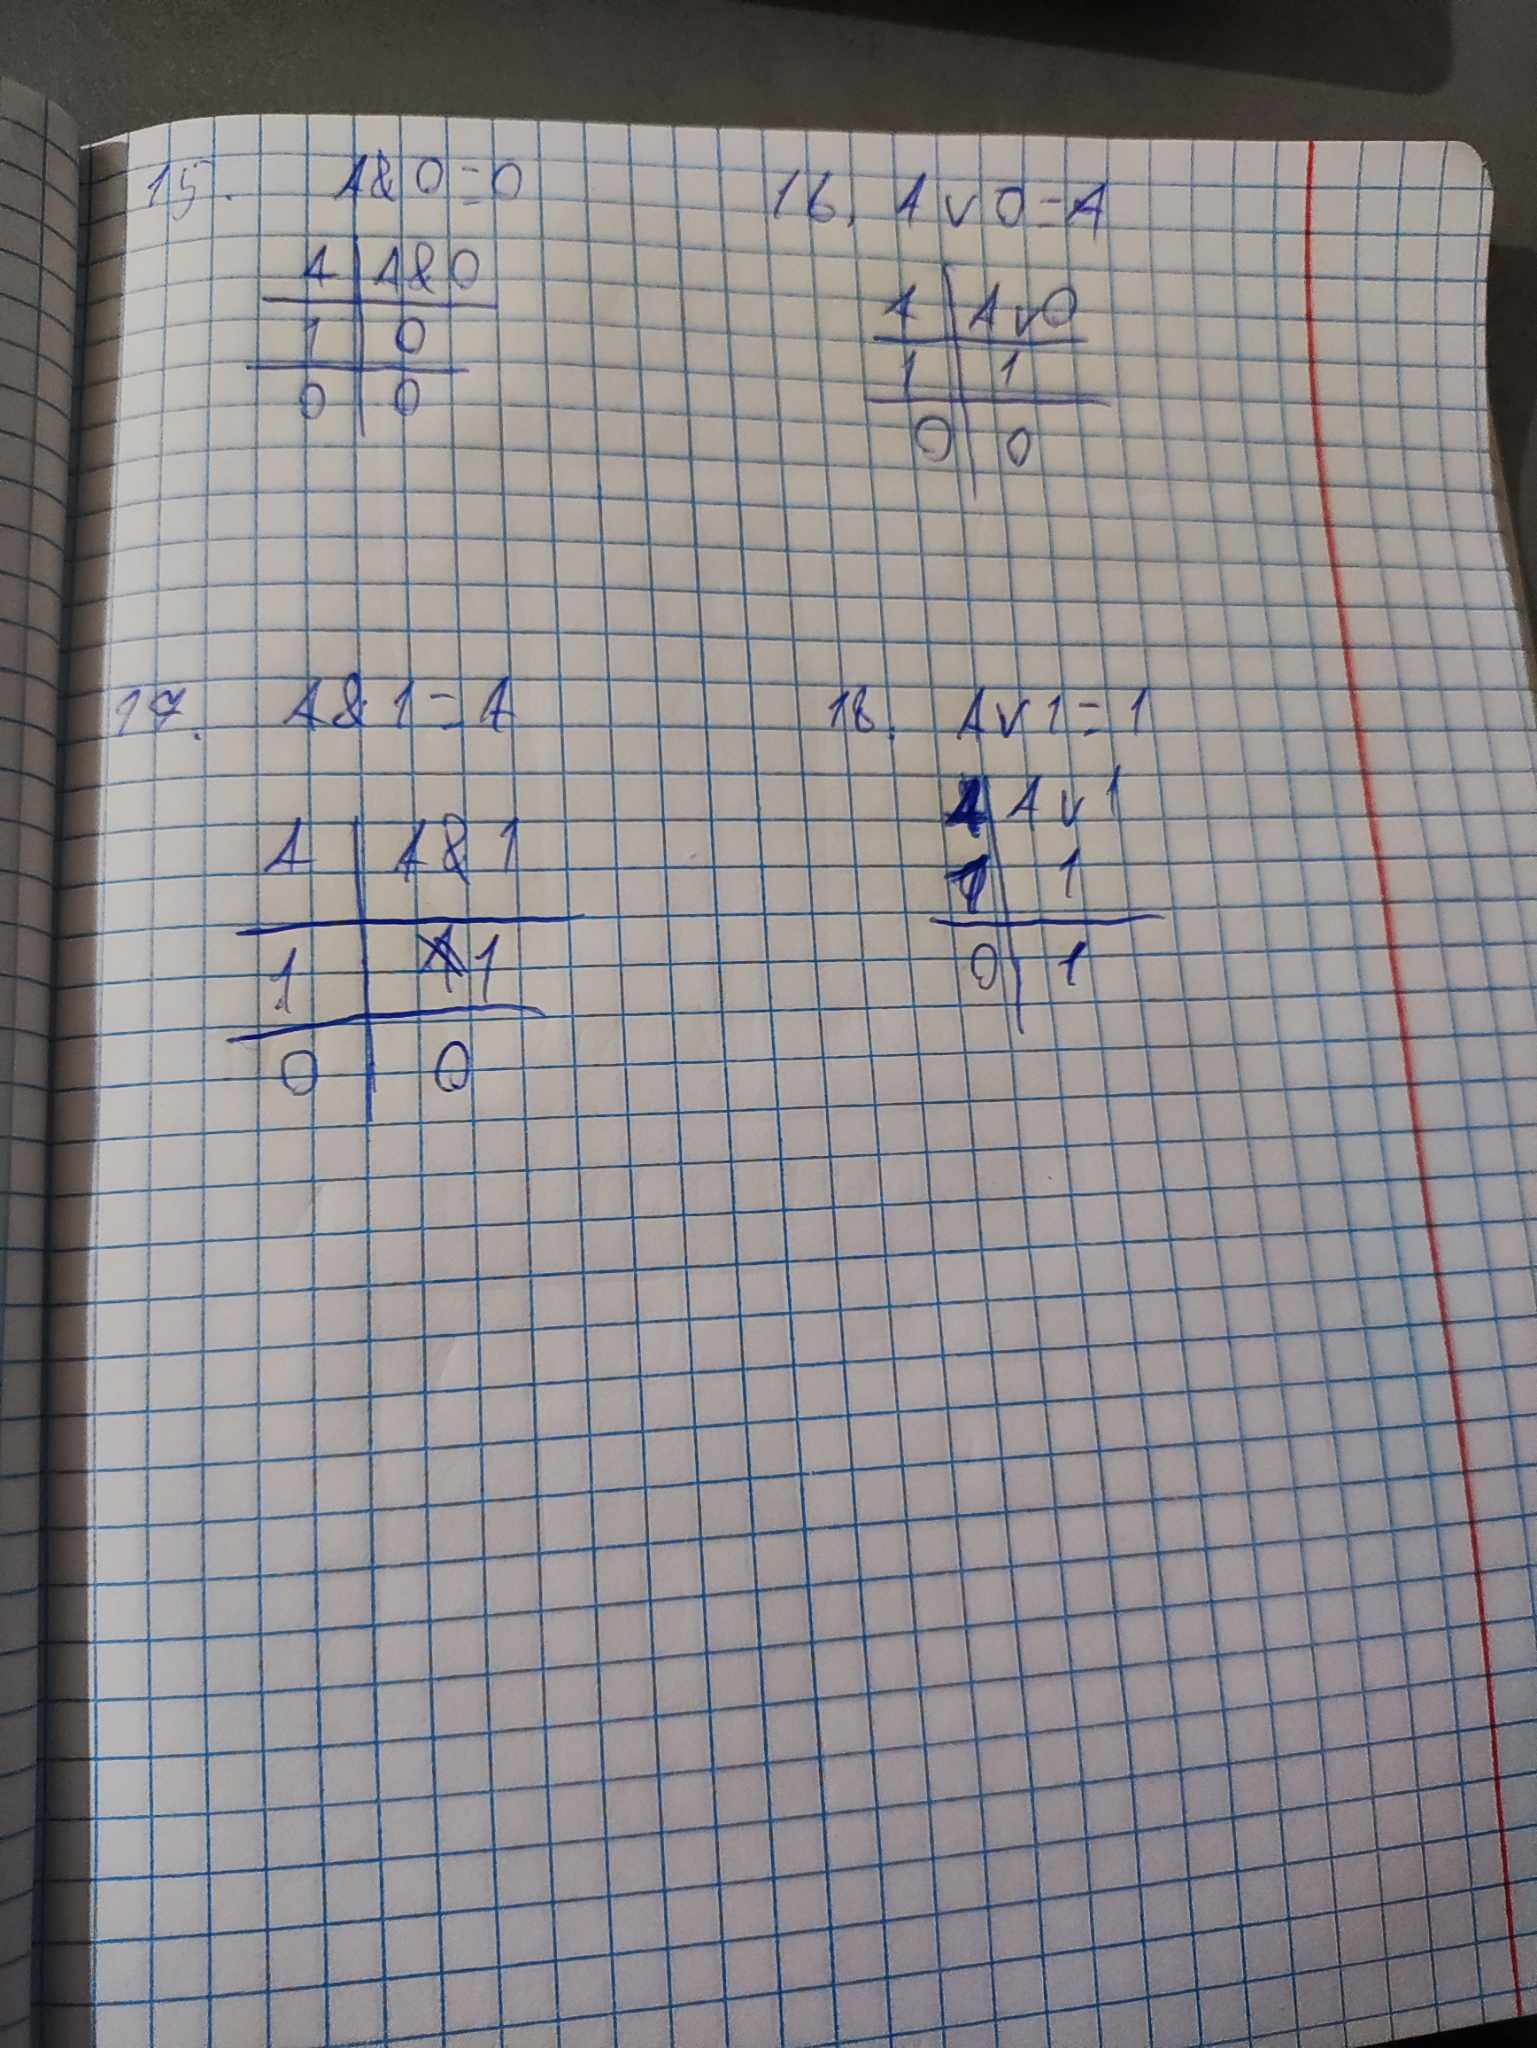 15. A&0=0
A A&0
1 0
0 0
16. A v 0=A
A A v 0
1 1
0 0
17. A&1=A
A A&1
1 1
0 0
18. A v 1=1
A A v 1
1 1
0 1